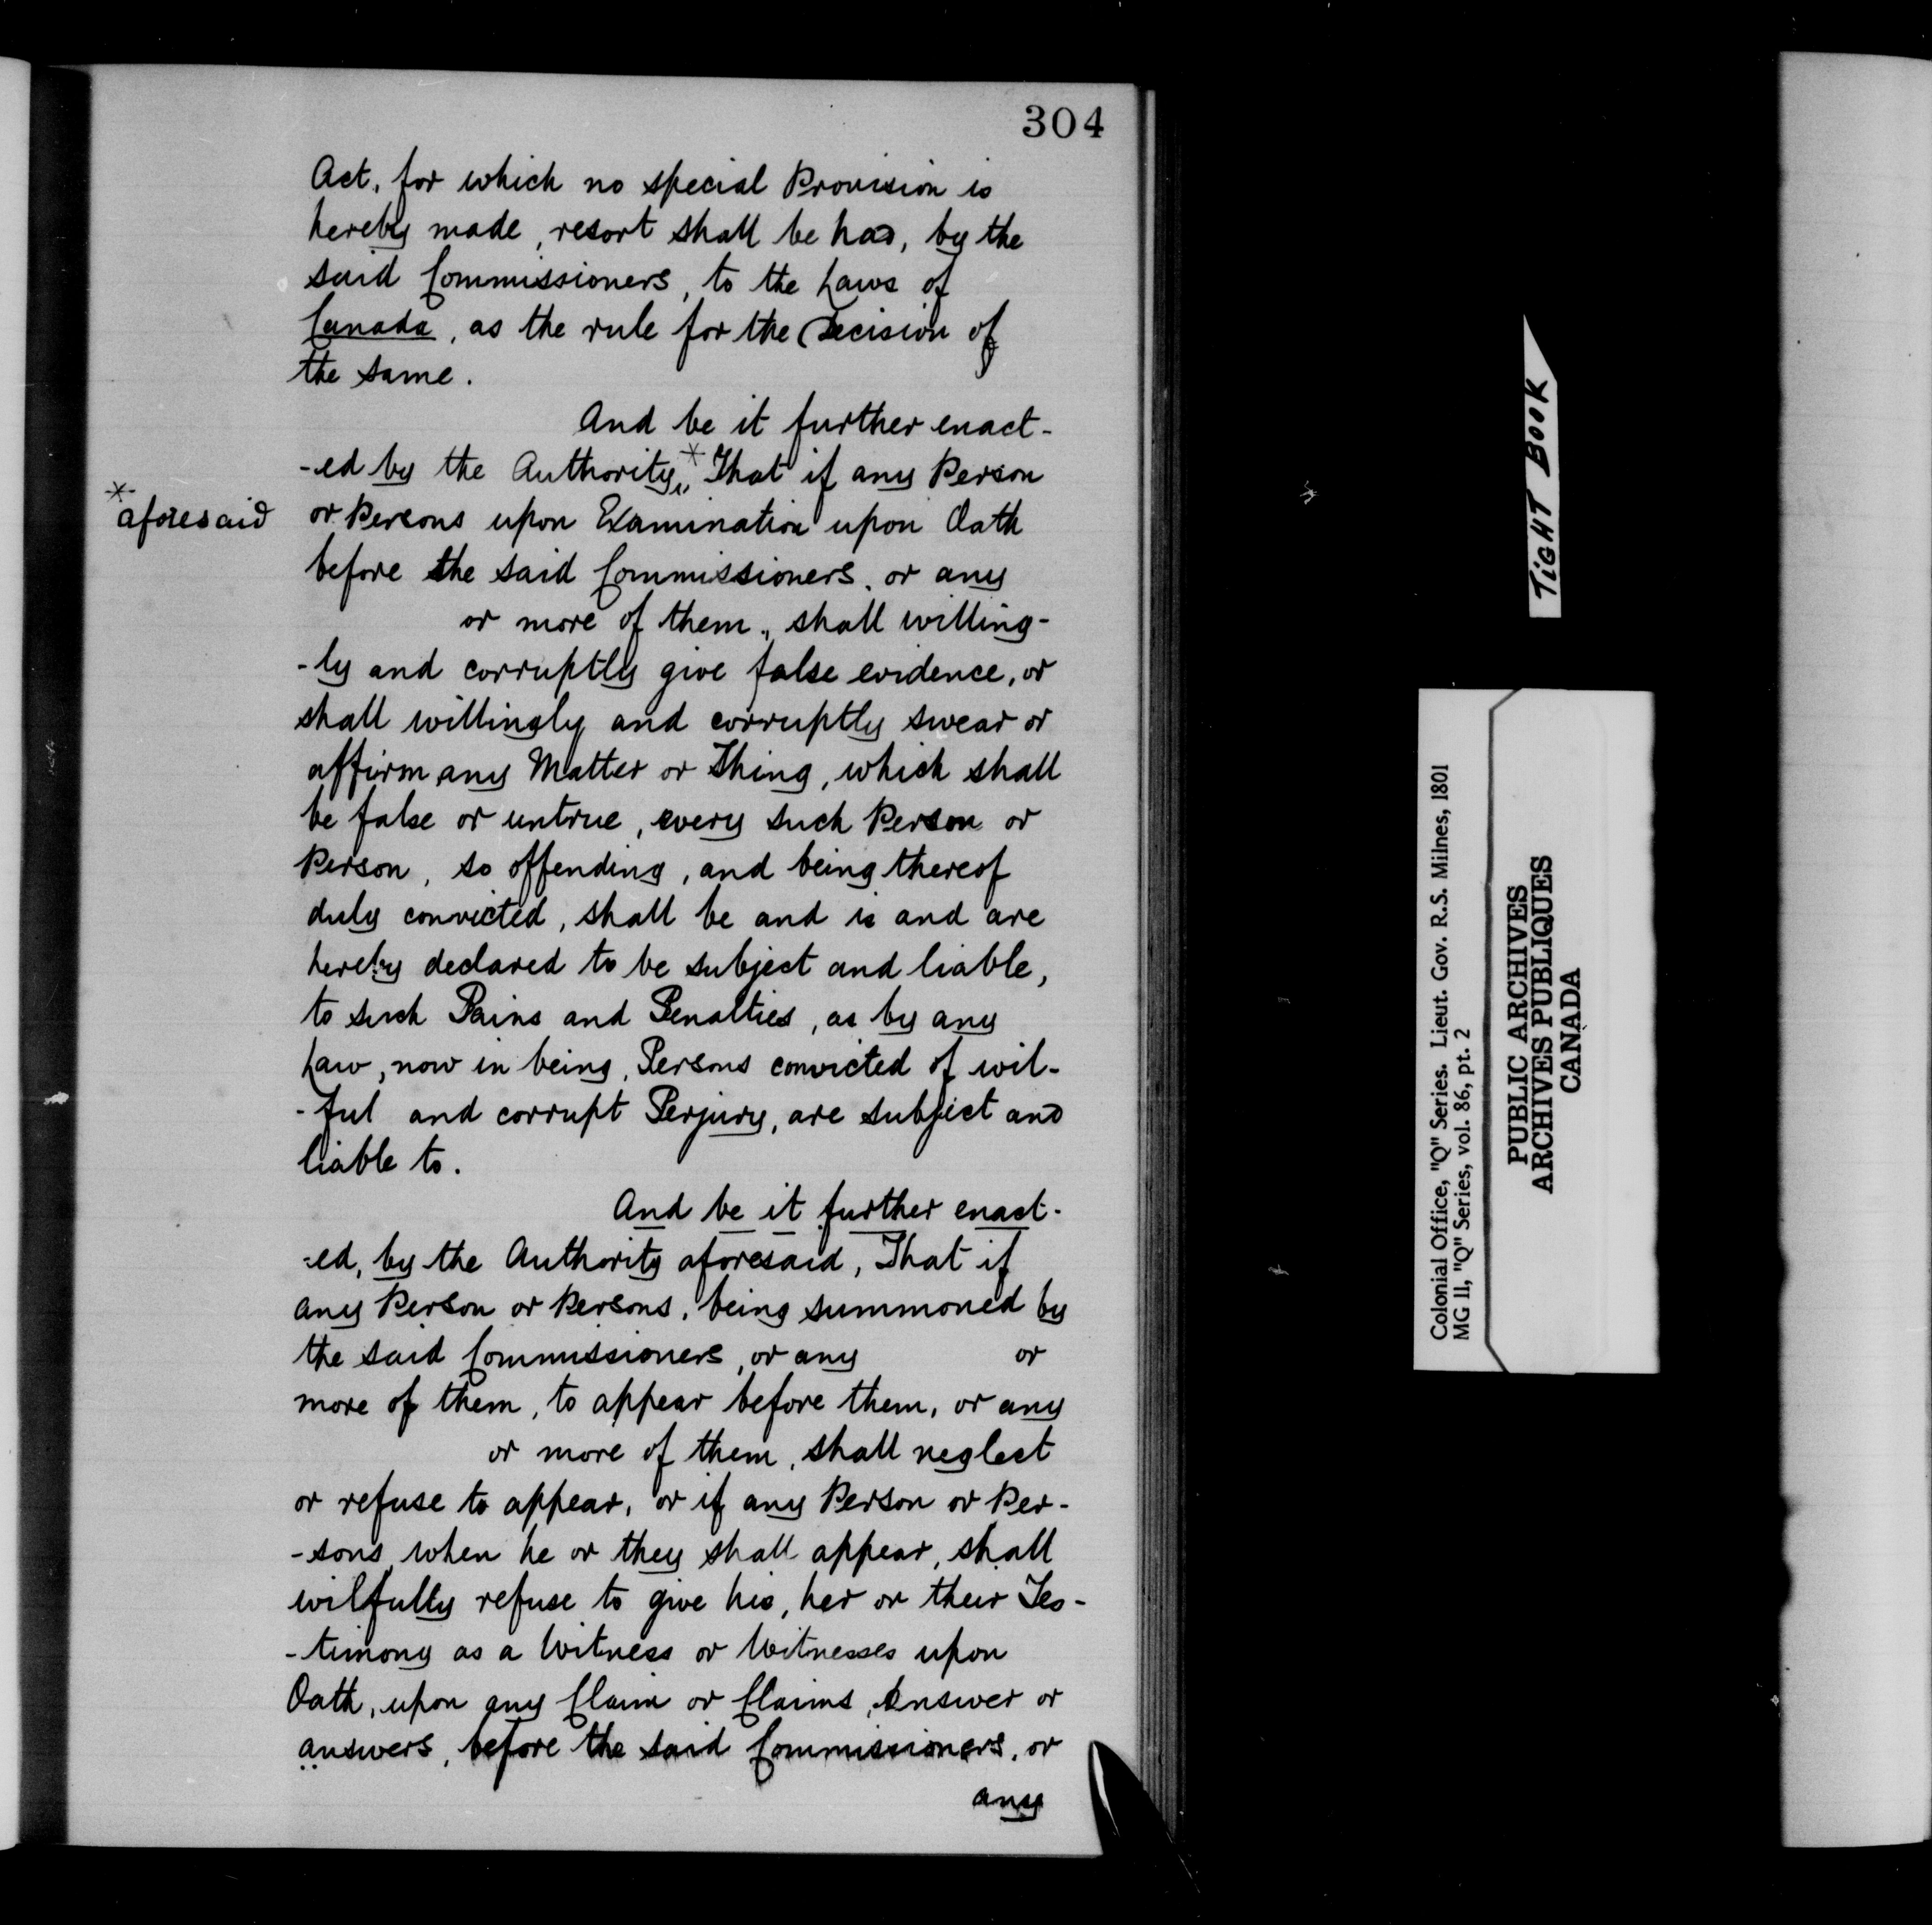 304
Act, for which no special Provision is
hereby made, resort shall be had, by the
said Commissioners, to the Laws of
Canada, as the rule for the Decision of
the same.
And be it further enact-
-ed by the Authority,* That if any Person
*
aforesaid
or Persons upon Examination upon Oath
before the said Commissioners, or any
or more of them, shall willing-
-ly and corruptly give false evidence, or
shall willingly and corruptly swear or
affirm any Matter or Thing, which shall
be false or untrue, every such Person or
Person, so offending, and being thereof
duly convicted, shall be and is and are
hereby declared to be subject and liable,
to such Pains and Penalties, as by any
Law, now in being, Persons convicted of wil-
-ful and corrupt Perjury, are subject and
liable to.
And be it further enact-
-ed, by the Authority aforesaid, That if
any Person or Persons, being summoned by
the said Commissioners, or any or
more of them, to appear before them, or any
or more of them, shall neglect
or refuse to appear, or if any Person or Per-
-sons, when he or they shall appear, shall
wilfully refuse to give his, her or their Tes-
-timony as a Witness or Witnesses upon
Oath, upon any Claim or Claims, Answer or
answers, before the said Commissioners, or
any
TIGHT BOOK
Colonial Office, "Q" Series. Lieut. Gov. R.S. Milnes, 1801
MG 11, "Q" Series, vol. 86, pt. 2
PUBLIC ARCHIVES
ARCHIVES PUBLIQUES
CANADA